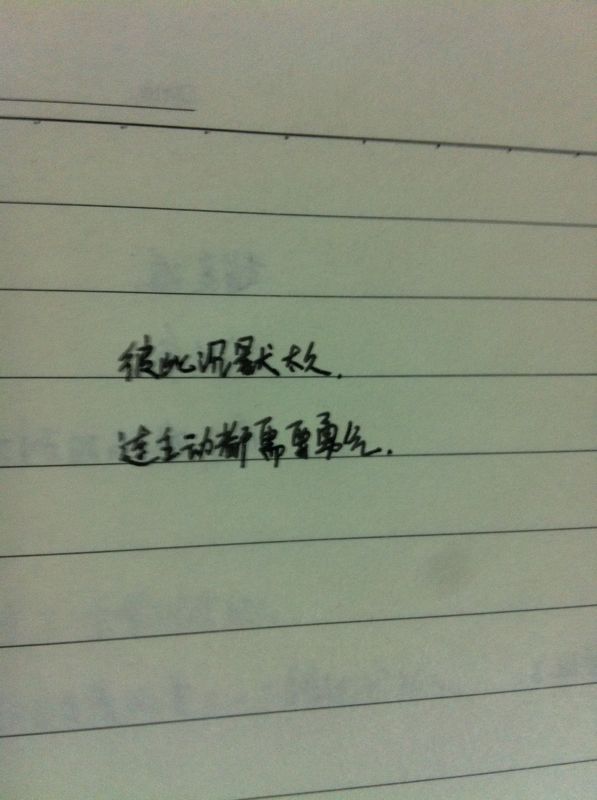 彼此沉默太久.
连主动都需要勇气.